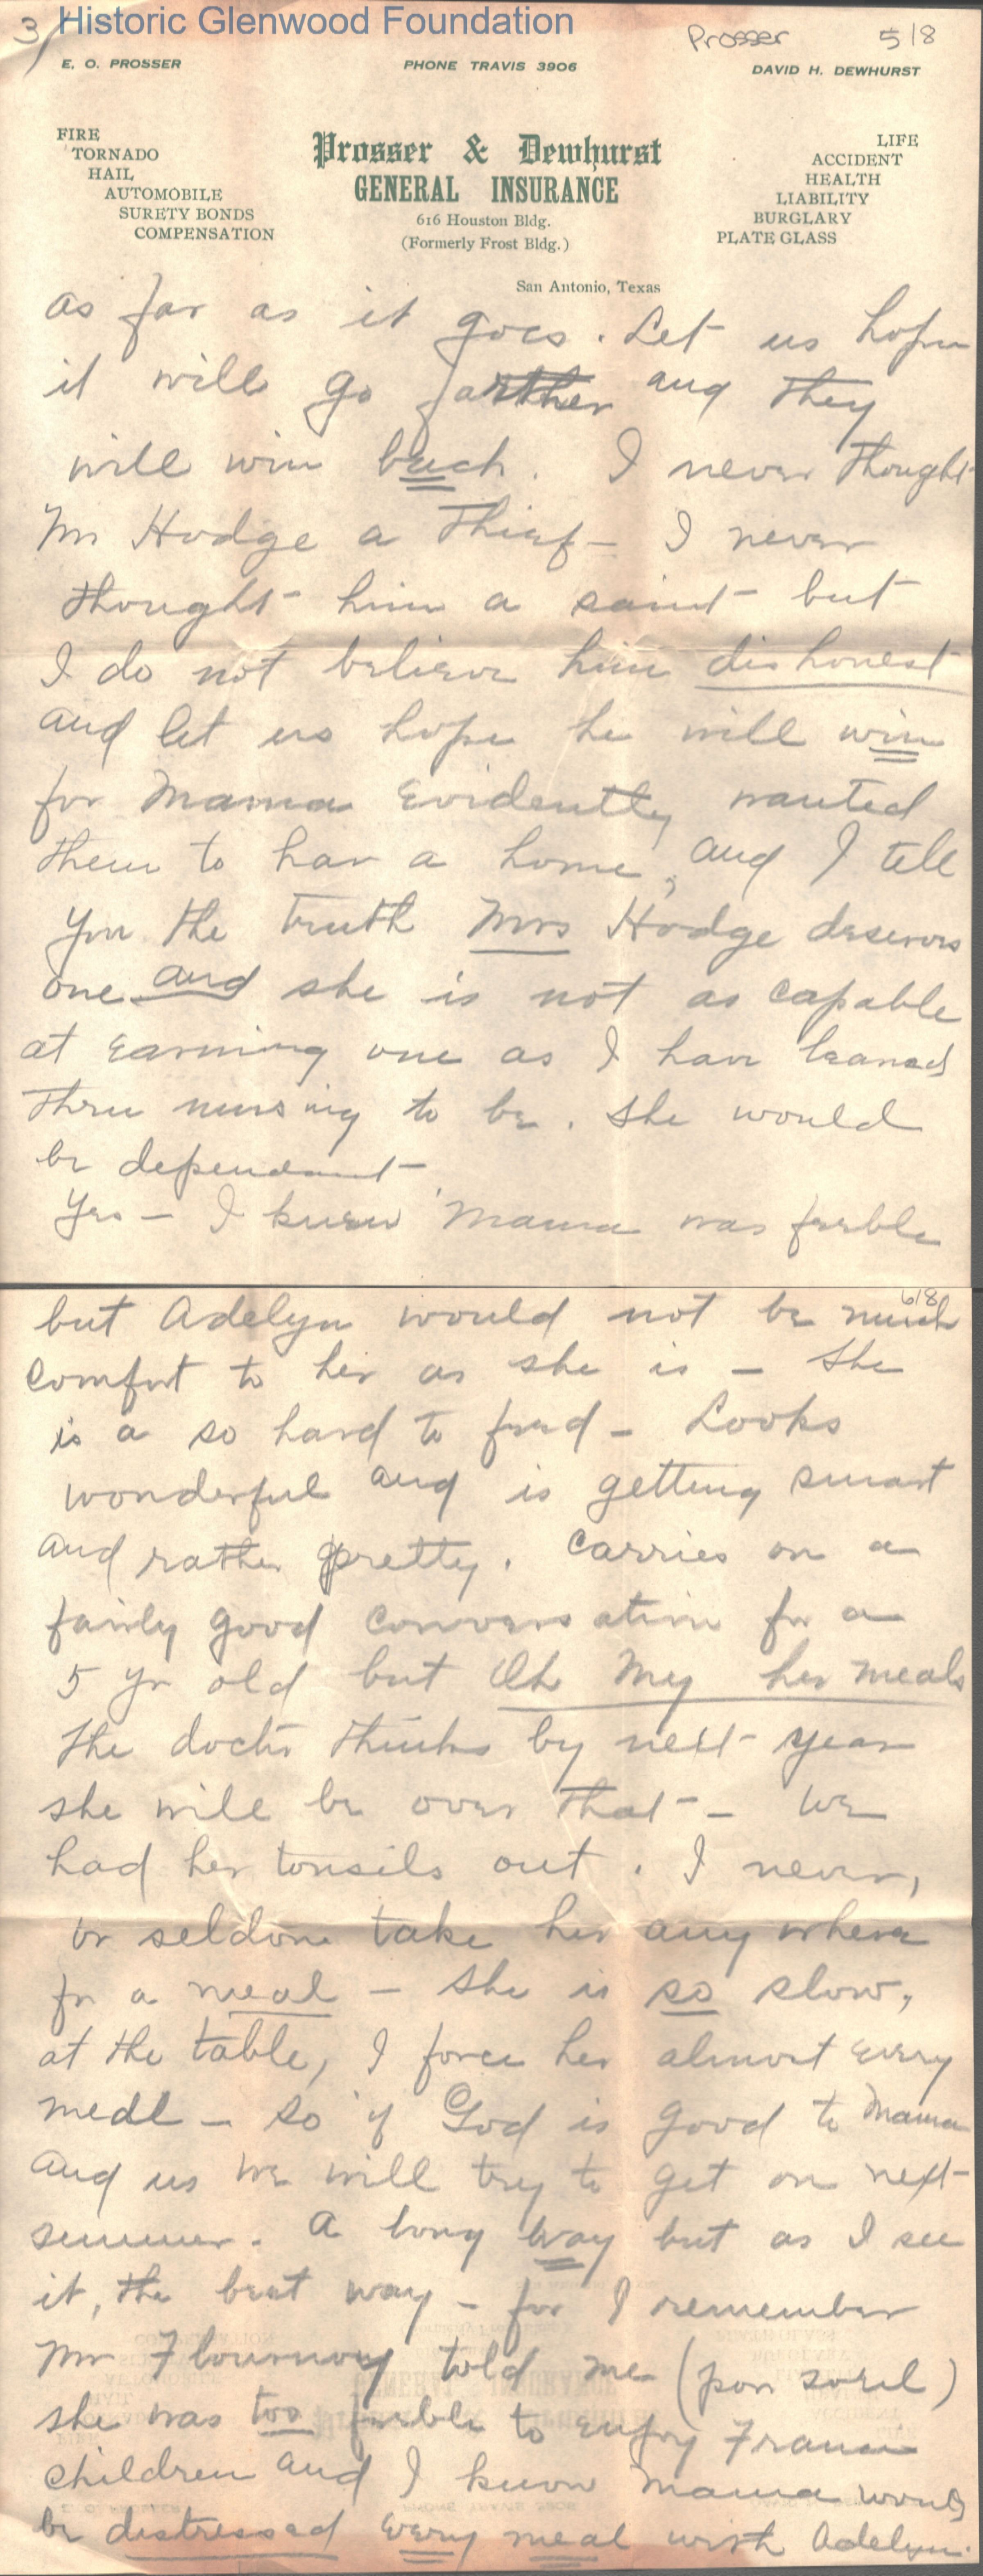 Historic Glenwood Foundation
3/
Prosser 5/8
E. O. PROSSER PHONE TRAVIS 3906 DAVID H. DEWHURST
FIRE
TORNADO
HAIL
AUTOMOBILE
SURETY BONDS
COMPENSATION
Prosser & Dewhurst
GENERAL INSURANCE
616 Houston Bldg.
(Formerly Frost Bldg.)
LIFE
ACCIDENT
HEALTH
LIABILITY
BURGLARY
PLATE GLASS
San Antonio, Texas
as far as it goes. Let us hope
it will go farther and they
will win . I never thought
Mr Hodge a thief - I never
thought him a saint but
I do not believe him dishonest
and let us hope he will win
for Mama Evidently wanted
them to have a home, and I tell
you the truth Mrs Hodge deserves
one and she is not as capable
at earning one as I have learned
thru nursing to be. She would
be dependant
Yes - I knew Mama was feeble
6/8
but Adelyn would not be much
comfort to her as she is - She
is a so hard to feed - Looks
wonderful and is getting smart
and rather pretty. Carries on a
fairly good conversation for a
5 yr old but Oh My her meals
The doctor thinks by next year
she will be over that - We
had her tonsils out. I never,
or seldom take her any where
for a meal - She is so slow,
at the table, I force her almost every
meal - So if God is good to Mama
and us we will try to get on next
summer. A long way but as I see
it, the best way - for I remember
Mr Flournoy told me (poor soul)
she was too feeble to enjoy
children and I know Mama would
be distressed every meal with Adelyn.